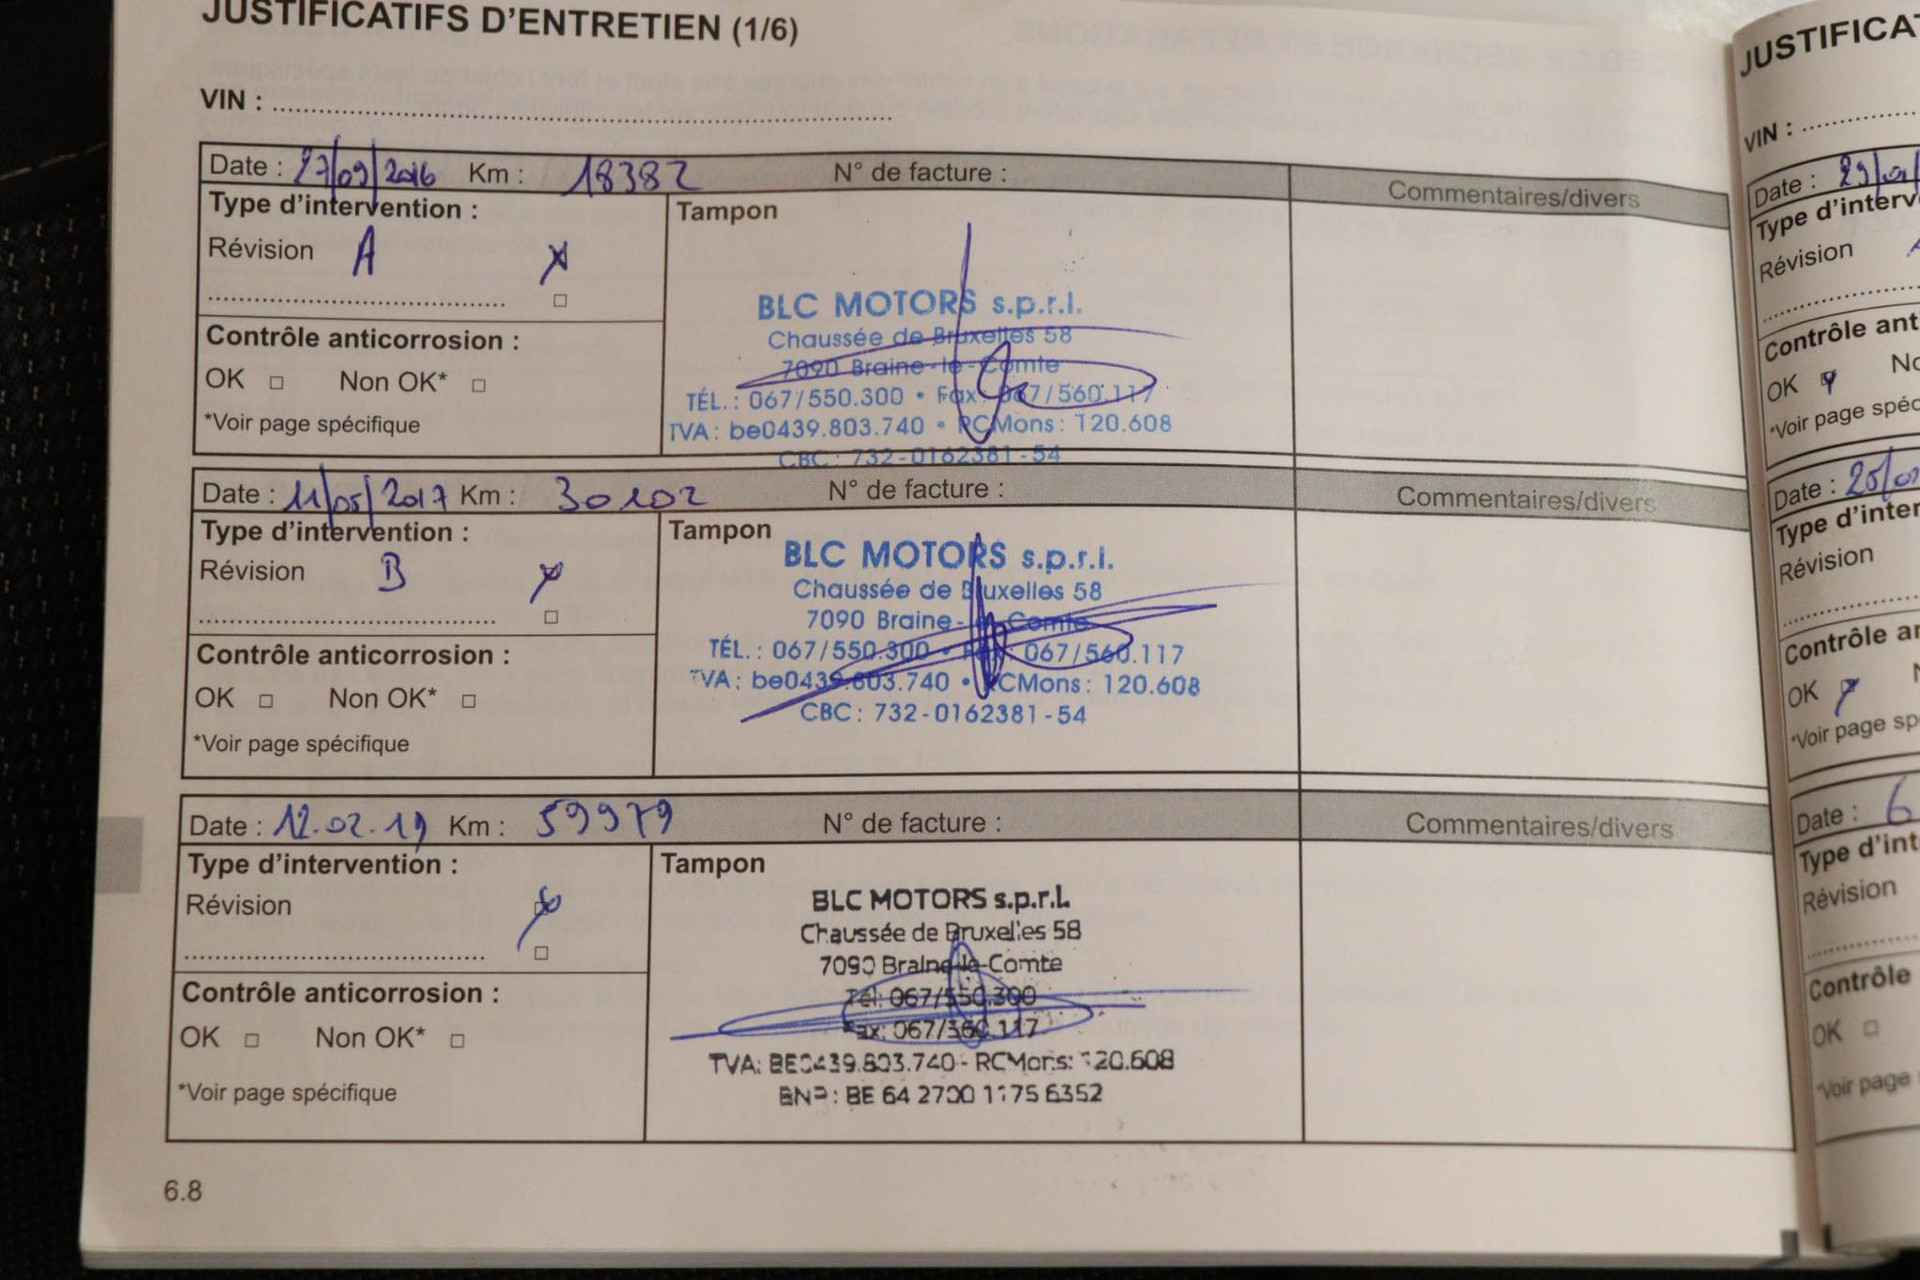 JUSTIFICATIFS D'ENTRETIEN (1/6)
VIN :
Date : 27/09/2016 Km : 18382 N° de facture : Commentaires/divers
Type d'intervention :
Révision A
Tampon
BLC MOTORS s.p.r.l.
Chaussée de Bruxelles 58
7090 Braine-le-Comte
TÉL. : 067/550.300 • Fax : 067/560.117
TVA : be0439.803.740 • RCMons : 120.608
CBC : 732-0162381-54
Contrôle anticorrosion :
OK □ Non OK* □
*Voir page spécifique
Date : 11/05/2017 Km : 30102 N° de facture : Commentaires/divers
Type d'intervention :
Révision B
Tampon
BLC MOTORS s.p.r.l.
Chaussée de Bruxelles 58
7090 Braine-le-Comte
TÉL. : 067/550.300 • Fax : 067/560.117
TVA : be0439.803.740 • RCMons : 120.608
CBC : 732-0162381-54
Contrôle anticorrosion :
OK □ Non OK* □
*Voir page spécifique
Date : 12.02.19 Km : 59979 N° de facture : Commentaires/divers
Type d'intervention :
Révision
Tampon
BLC MOTORS s.p.r.l.
Chaussée de Bruxelles 58
7090 Braine-le-Comte
Tél: 067/550.300
Fax: 067/560.117
TVA: BE0439.803.740 - RCMons: 120.608
BNP : BE 64 2700 1175 6352
Contrôle anticorrosion :
OK □ Non OK* □
*Voir page spécifique
6.8
VIN :
Date :
Révision
OK
*Voir page
Date :
Révision
Contrôle
OK
*Voir page
Date : 6
Révision
Contrôle
OK □
*Voir page